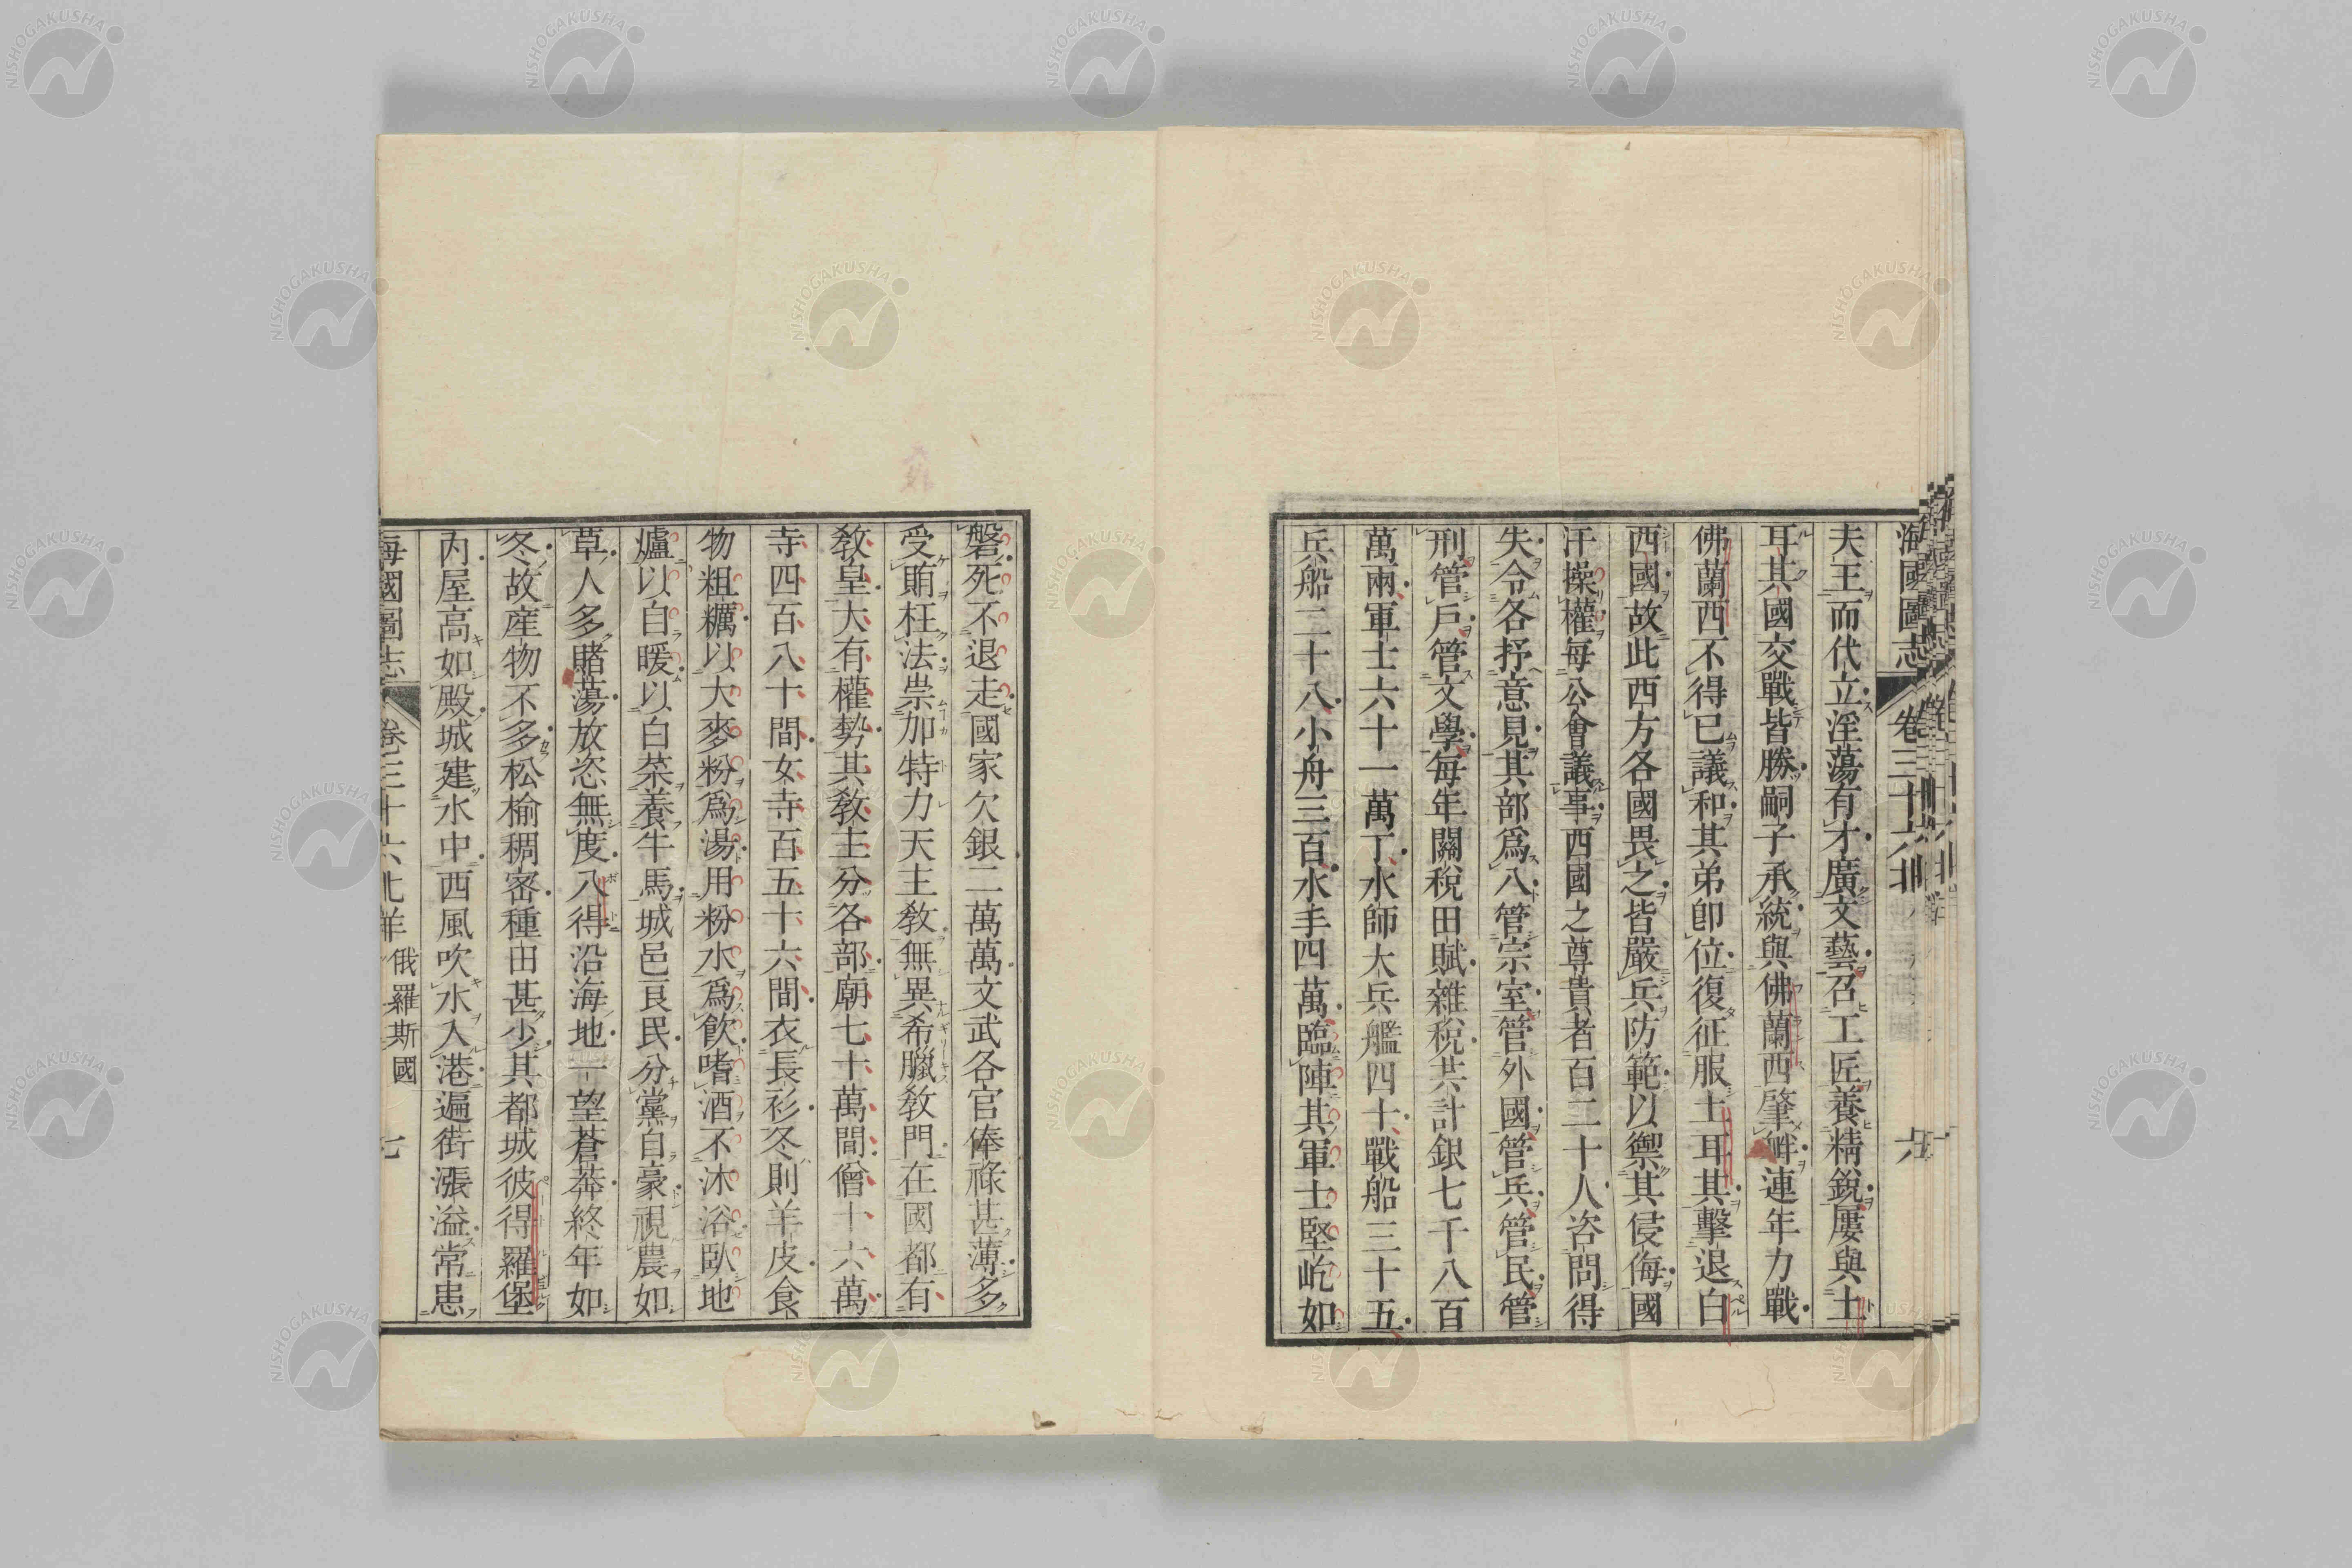 海國圖志 卷三十六 北
夫王而代立淫蕩有才廣文藝召工匠養精銳屢與土
耳其國交戰皆勝嗣子承統與佛蘭西肇衅連年力戰
佛蘭西不得已議和其弟卽位復征服土耳其擊退白
西國故此西方各國畏之皆嚴兵防範以禦其侵侮國
汗操權每公會議事西國之尊貴者百二十人咨問得
失令各抒意見其部爲八管宗室管外國管兵管民管
刑管戶管文學每年關稅田賦雜稅共計銀七千八百
萬兩軍士六十一萬丁水師大兵艦四十戰船三十五
兵船二十八小舟三百水手四萬臨陣其軍士堅屹如
磐死不退走國家欠銀二萬萬文武各官俸祿甚薄多
受賄枉法祟加特力天主敎無異希臘敎門在國都有
敎皇大有權勢其敎主分各部廟七十萬間僧十六萬
寺四百八十間女寺百五十六間衣長衫冬則羊皮食
物粗糲以大麥粉爲湯用粉水爲飮嗜酒不沐浴臥地
爐以自暖以白菜養牛馬城邑良民分黨自豪視農如
草人多賭蕩放恣無度八得沿海地一望蒼莽終年如
冬故産物不多松榆稠密種田甚少其都城彼得羅堡
內屋高如殿城建水中西風吹水入港遍街漲溢常患
海國圖志 卷三十六 北洋 俄羅斯國 七
NISHOGAKUSHA